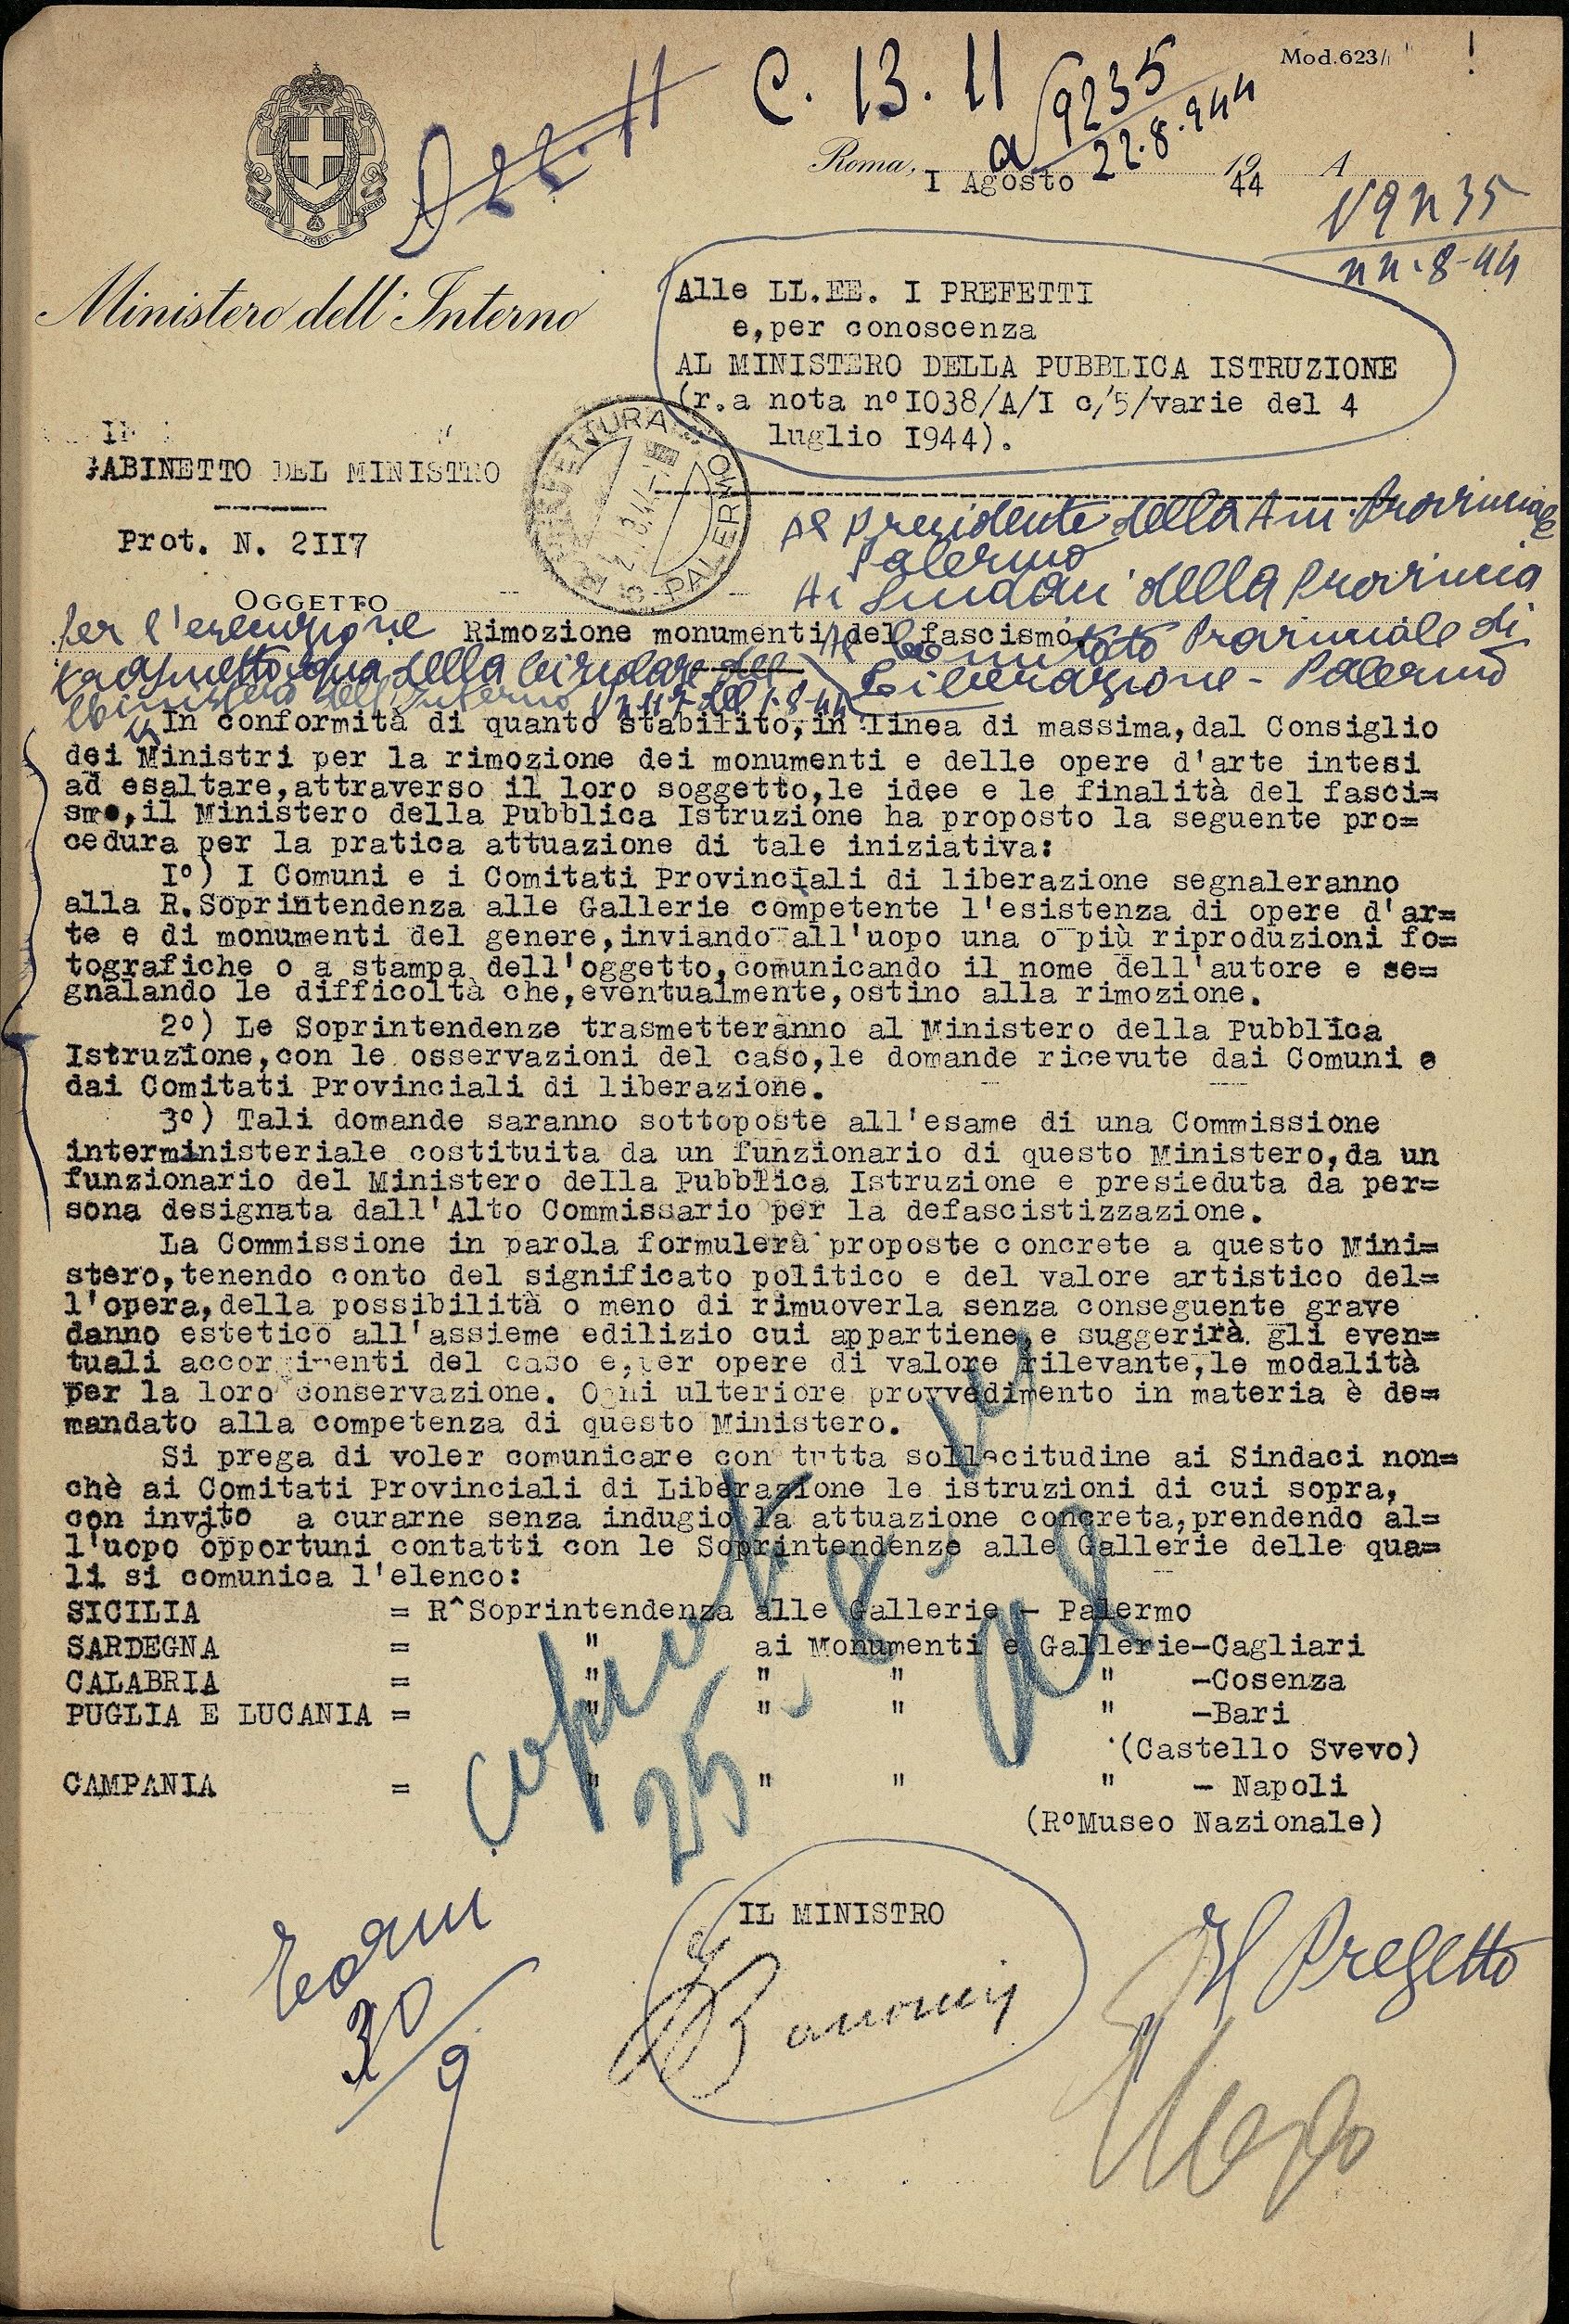 Mod. 623/
C. 13. 11
9235
22.8.944
Roma, I Agosto 1944 A
22.8-44
Ministero dell'Interno
Alle LL.EE. I PREFETTI
e,per conoscenza
AL MINISTERO DELLA PUBBLICA ISTRUZIONE
(r.a nota n°I038/A/I c/5/varie del 4
luglio I944).
GABINETTO DEL MINISTRO
Prot. N. 2II7
PREFETTURA PALERMO
Al Presidente della Am. Provinciale
Palermo
Ai Sindaci della Provincia
Al Comitato Provinciale di
Liberazione - Palermo
OGGETTO Rimozione monumenti del fascismo
Per l'esecuzione
trasmetto copia della circolare del
Ministero dell'Interno N 2117 del 1-8-44
In conformità di quanto stabilito,in linea di massima,dal Consiglio
dei Ministri per la rimozione dei monumenti e delle opere d'arte intesi
ad esaltare,attraverso il loro soggetto,le idee e le finalità del fasci=
smo,il Ministero della Pubblica Istruzione ha proposto la seguente pro=
cedura per la pratica attuazione di tale iniziativa:
I°) I Comuni e i Comitati Provinciali di liberazione segnaleranno
alla R.Soprintendenza alle Gallerie competente l'esistenza di opere d'ar=
te e di monumenti del genere,inviando all'uopo una o più riproduzioni fo=
tografiche o a stampa dell'oggetto,comunicando il nome dell'autore e se=
gnalando le difficoltà che,eventualmente,ostino alla rimozione.
2°) Le Soprintendenze trasmetteranno al Ministero della Pubblica
Istruzione,con le osservazioni del caso,le domande ricevute dai Comuni e
dai Comitati Provinciali di liberazione.
3°) Tali domande saranno sottoposte all'esame di una Commissione
interministeriale costituita da un funzionario di questo Ministero,da un
funzionario del Ministero della Pubblica Istruzione e presieduta da per=
sona designata dall'Alto Commissario per la defascistizzazione.
La Commissione in parola formulerà proposte concrete a questo Mini=
stero,tenendo conto del significato politico e del valore artistico del=
l'opera,della possibilità o meno di rimuoverla senza conseguente grave
danno estetico all'assieme edilizio cui appartiene,e suggerirà gli even=
tuali accorgimenti del caso e,per opere di valore rilevante,le modalità
per la loro conservazione. Ogni ulteriore provvedimento in materia è de=
mandato alla competenza di questo Ministero.
Si prega di voler comunicare con tutta sollecitudine ai Sindaci non=
chè ai Comitati Provinciali di Liberazione le istruzioni di cui sopra,
con invito a curarne senza indugio la attuazione concreta,prendendo al=
l'uopo opportuni contatti con le Soprintendenze alle Gallerie delle qua=
li si comunica l'elenco:
SICILIA = R^Soprintendenza alle Gallerie - Palermo
SARDEGNA = " ai Monumenti e Gallerie-Cagliari
CALABRIA = " " " " -Cosenza
PUGLIA E LUCANIA = " " " " -Bari
(Castello Svevo)
CAMPANIA = " " " " - Napoli
(R°Museo Nazionale)
25
IL MINISTRO
Bonomi
30/9
Il Prefetto